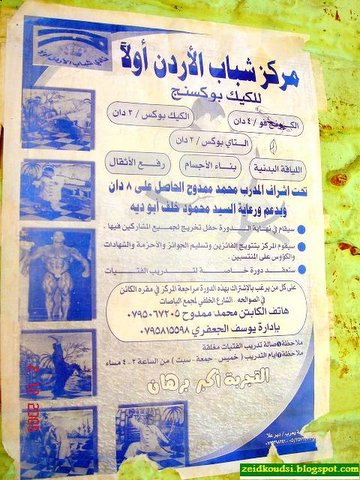 نادي شباب الأردن أولاً
مركز شباب الأردن أولاً
للكيك بوكسنج
الكيك بوكس / ٣ دان
الكونج فو / ٤ دان
التاي بوكس / ٢ دان
اللياقة البدنية
بناء الأجسام
رفع الأثقال
تحت اشراف المدرب محمد ممدوح الحاصل على ٨ دان
وبدعم ورعاية السيد محمود خلف أبو ديه
سيقام في نهاية الدورة حفل تخريج لجميع المشاركين فيها.
سيقوم المركز بتتويج الفائزين وتسليم الجوائز والأحزمة والشهادات
والكؤوس على المنتسبين.
ستعقد دورة خاصة لتدريب الفتيات
على كل من يرغب بالاشتراك بهذه الدورة مراجعة المركز في مقره الكائن
في الصوالحه - الشارع الخلفي لمجمع الباصات
هاتف الكابتن محمد ممدوح ٠٧٩٥٠٦٧٢٠٥
بإدارة يوسف الجعفري ٠٧٩٥٨١٥٥٩٨
ملاحظة صالة تدريب الفتيات مغلقة
ملاحظة أيام التدريب (خميس - جمعة - سبت) من الساعة ٢-٤ مساء
التجربة أكبر برهان
zeidkoudsi.blogspot.com